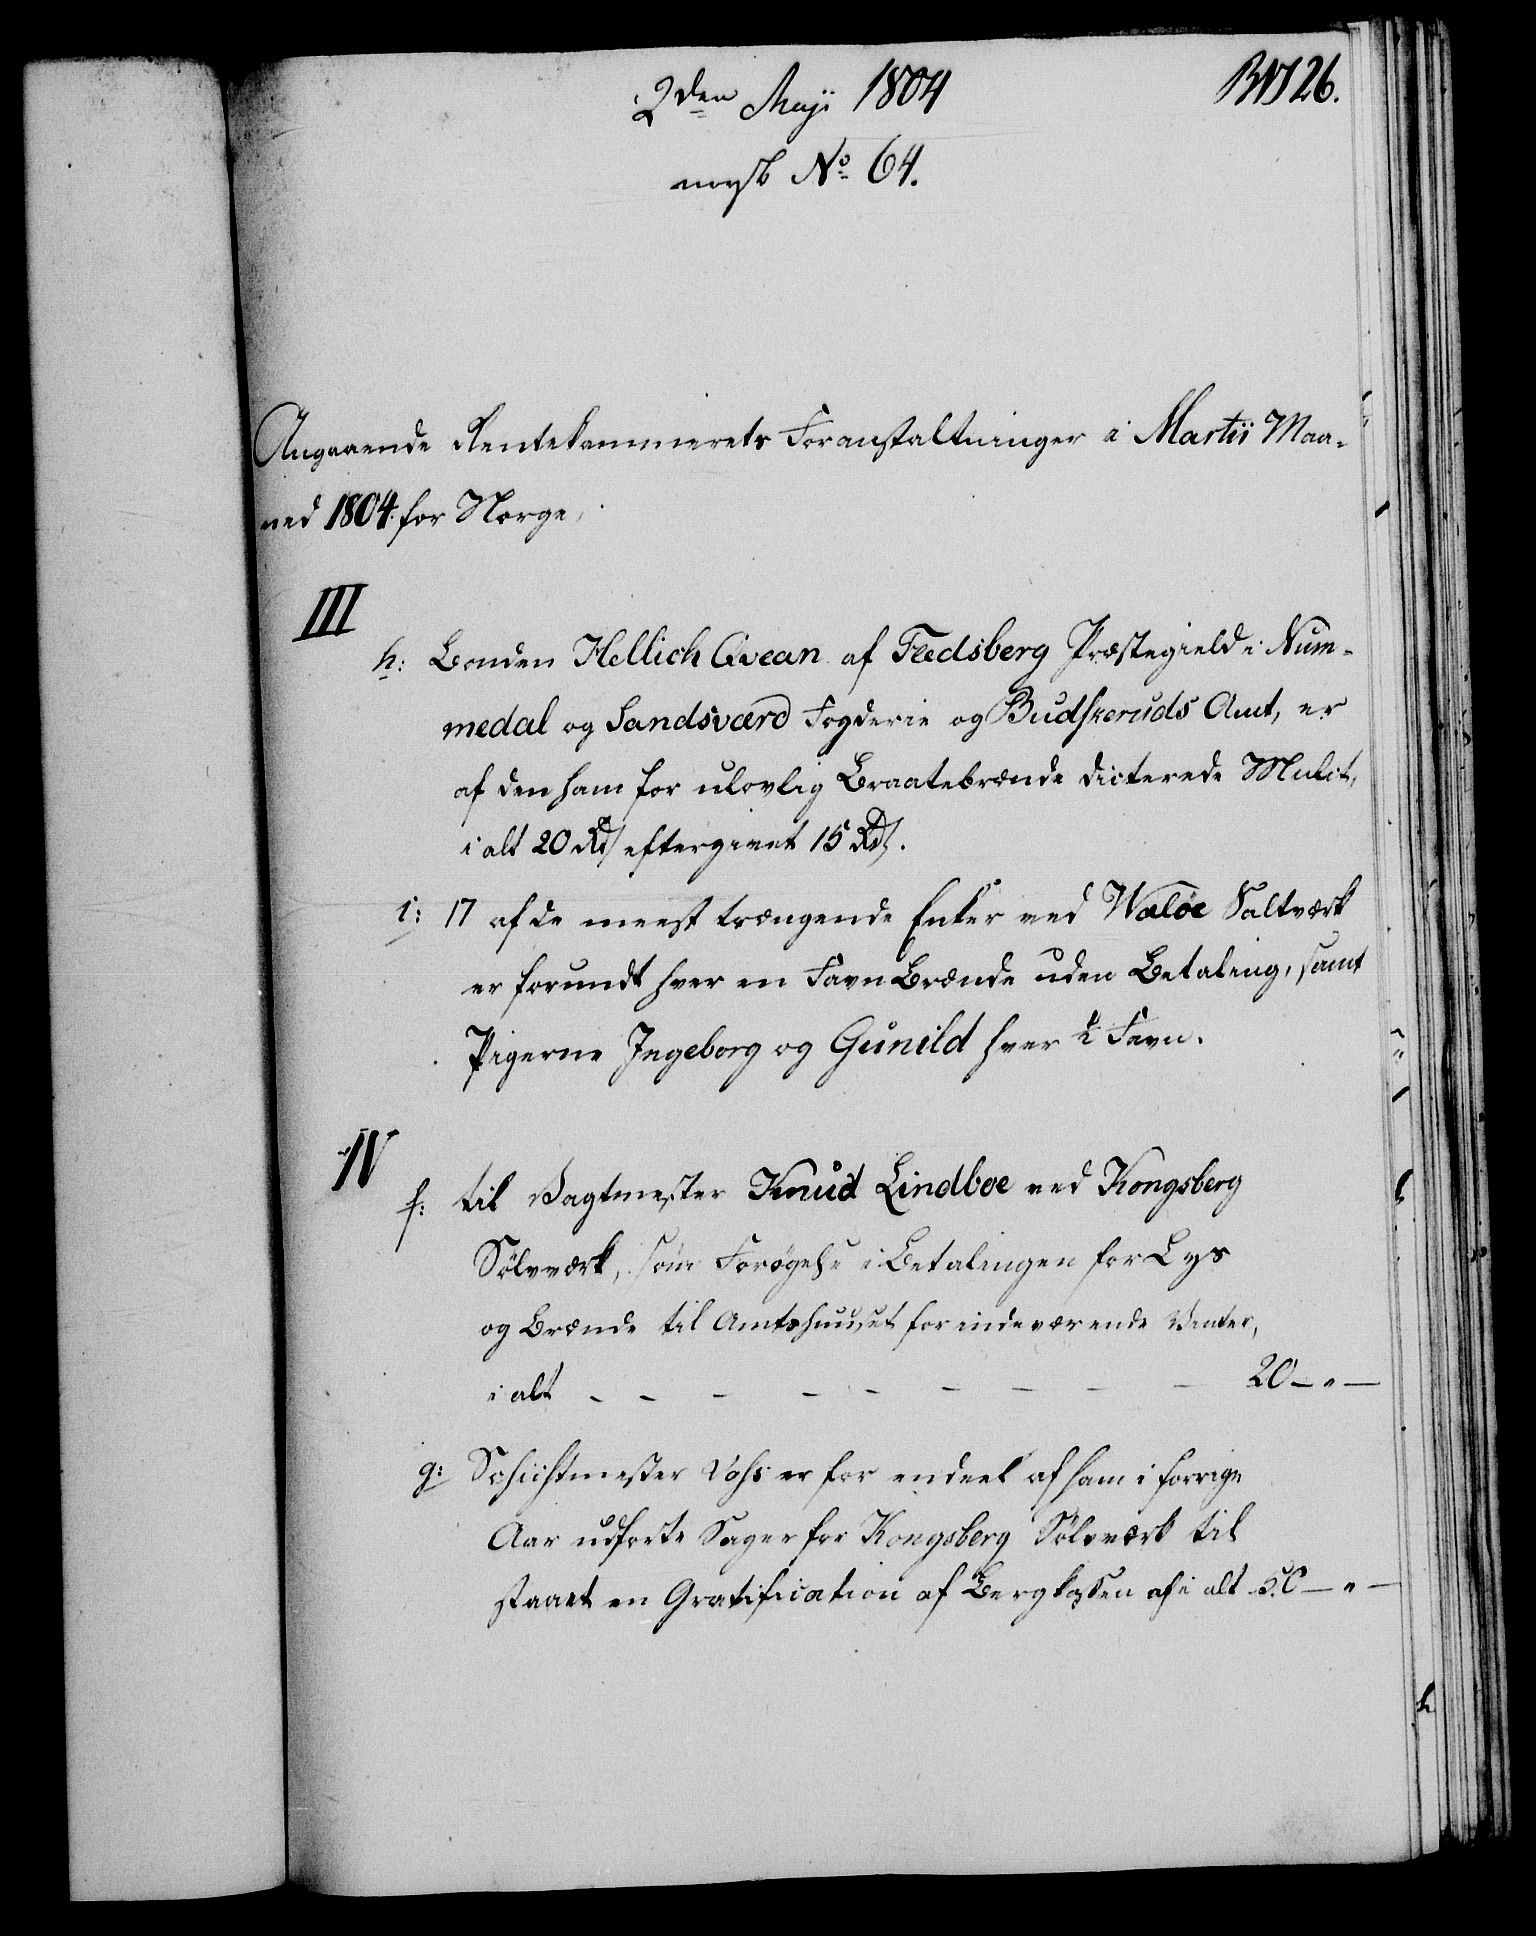 2den Maji 1804
BNJ 26.
norsk No 64.
Angaaende Rentekammerets Foranstaltninger i Martii Maa-
ned 1804. for Norge.
III
h: Bonden Hellich Qvean af Fledsberg Præstegield i Num-
medal og Sandsværd Fogderie og Budskeruds Amt, er
af den ham for ulovlig Braatebrænde dicterede Mulct,
i alt 20 Rd eftergivet 15 Rd.
i: 17 af de meest trængende Enker ved Waløe Saltværk
er forundt hver en Favn Brænde uden Betaling, samt
Pigerne Ingeborg og Gunild hver ½ Favn.
IV
f: til Vagtmester Knud Lindboe ved Kongsberg
Sølvværk, som Forøgelse i Betalingen for Lys
og Brænde til Amtshuuset for indeværende Vinter,
i alt - - - - - - - - - 20 - " -
g: Schichtmester Vohs er for endeel af ham i forrige
Aar udførte Sager for Kongsberg Sølvværk til
staaet en Gratification af Bergkassen af i alt 50 - " -